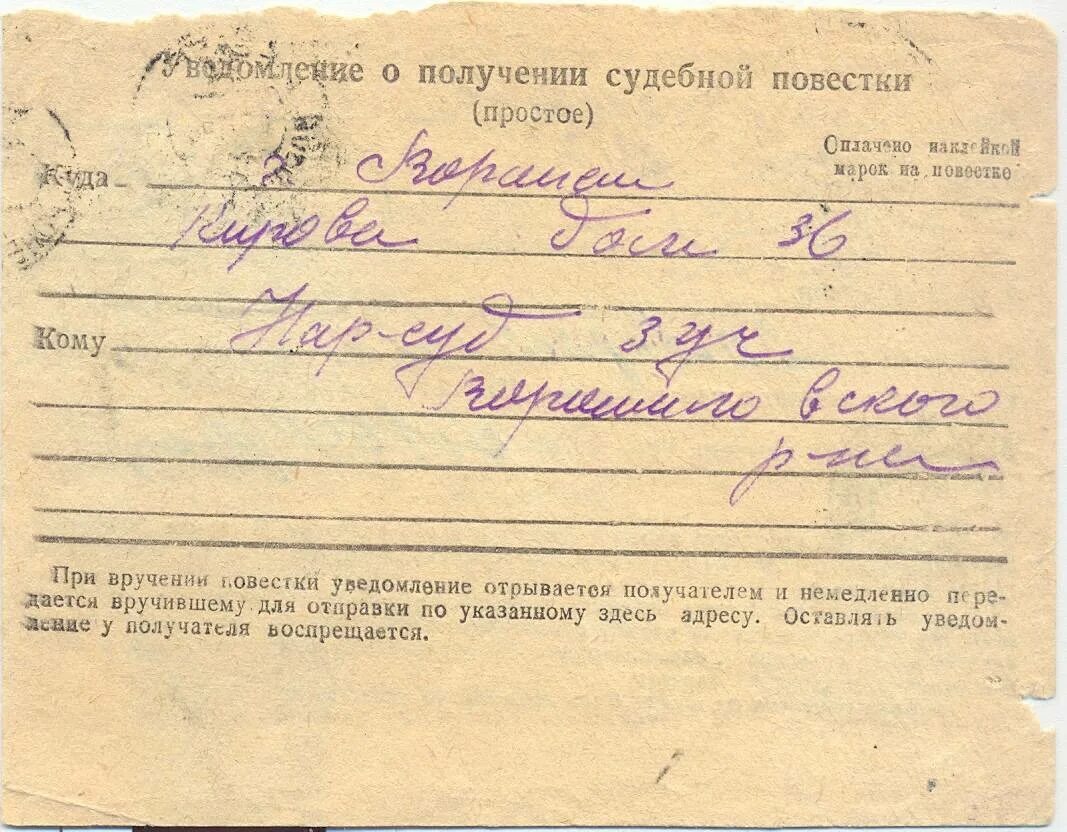 Уведомление о получении судебной повестки
(простое)
Оплачено наклейкой
марок на повестке
Куда
Кирова дом 36
Кому Нар-суд 3 уч
Ворошиловского
р-на
При вручении повестки уведомление отрывается получателем и немедленно пере-
дается вручившему для отправки по указанному здесь адресу. Оставлять уведом-
ление у получателя воспрещается.